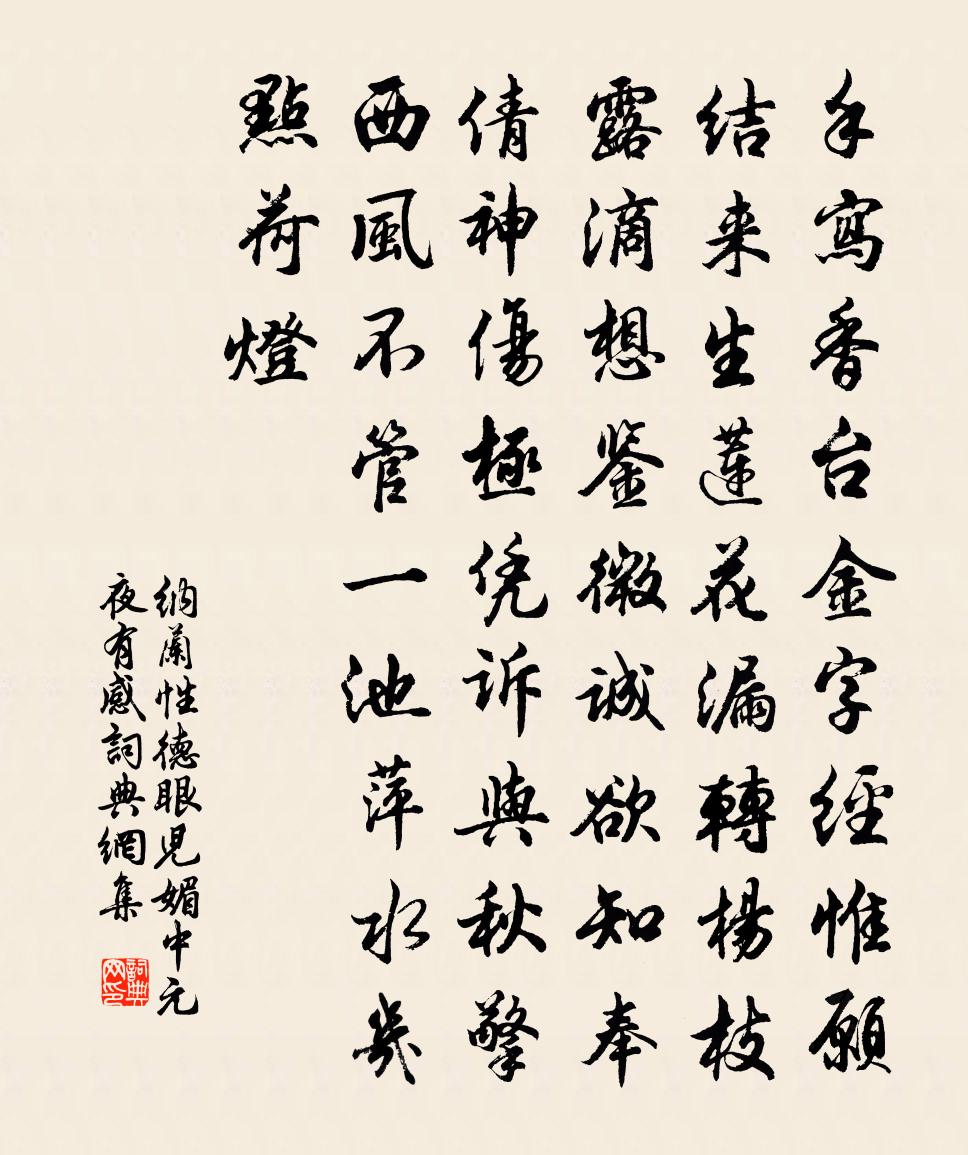 手寫香台金字經惟願
結来生蓮花漏轉楊枝
露滴想鉴微誠欲知奉
倩神傷極凭訴與秋擎
西風不管一池萍水幾
點荷燈
納蘭性德眼児媚中元
夜有感詞典網集
詞典网印